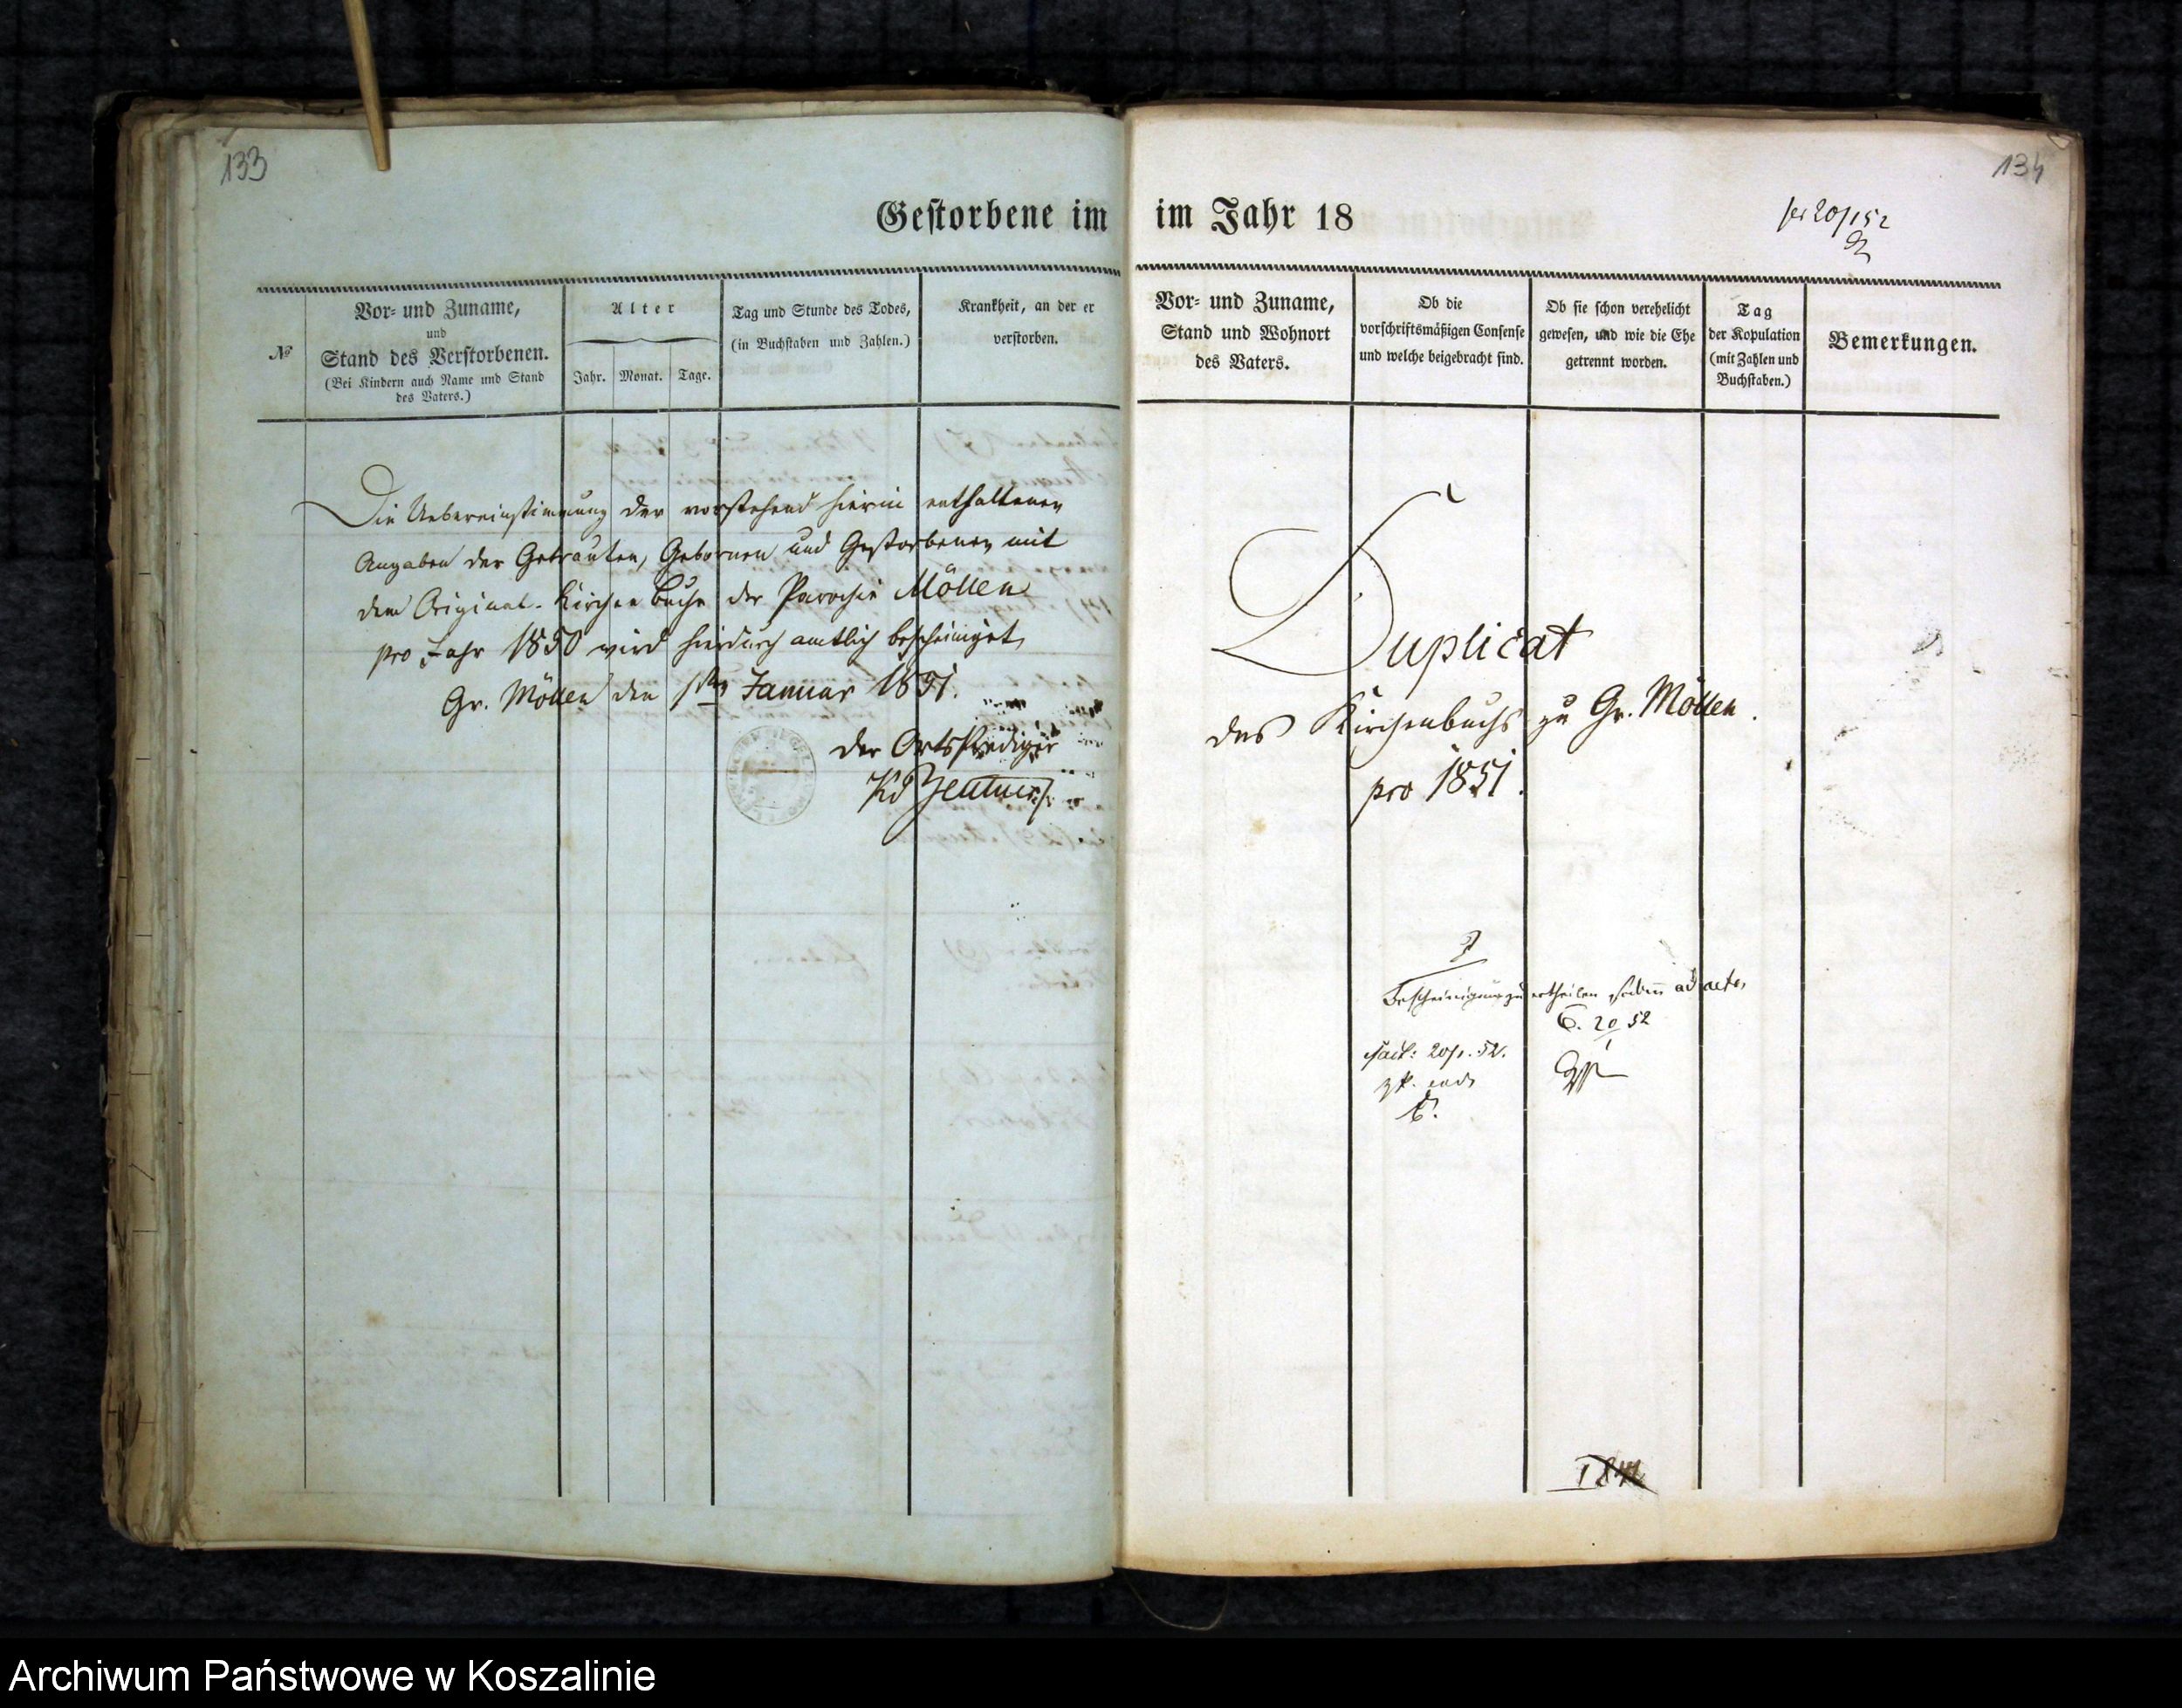 133
Gestorbene im
№
Vor- und Zuname,
und
Stand des Verstorbenen.
(Bei Kindern auch Name und Stand
des Vaters.)
Alter
Jahr. Monat. Tage.
Tag und Stunde des Todes,
(in Buchstaben und Zahlen.)
Krankheit, an der er
verstorben.
Die Uebereinstimmung der vorstehend hierin enthaltenen
Angaben der Getrauten, Gebornen und Gestorbenen mit
dem Original-Kirchenbuche der Parochie Möllen
pro Jahr 1850 wird hierdurch amtlich bescheinigt,
Gr. Möllen den 1ten Januar 1851.
Der Ortsprediger
134
im Jahr 18
20/1 52
Vor- und Zuname,
Stand und Wohnort
des Vaters.
Ob die
vorschriftsmäßigen Consense
und welche beigebracht sind.
Ob sie schon verehelicht
gewesen, und wie die Ehe
getrennt worden.
Tag
der Kopulation
(mit Zahlen und
Buchstaben.)
Bemerkungen.
Duplicat
des Kirchenbuchs zu Gr. Möllen.
pro 1851.
Bescheinigung zu ertheilen, ad acta,
C. 20/1 52
20/1. 52.
Archiwum Państwowe w Koszalinie